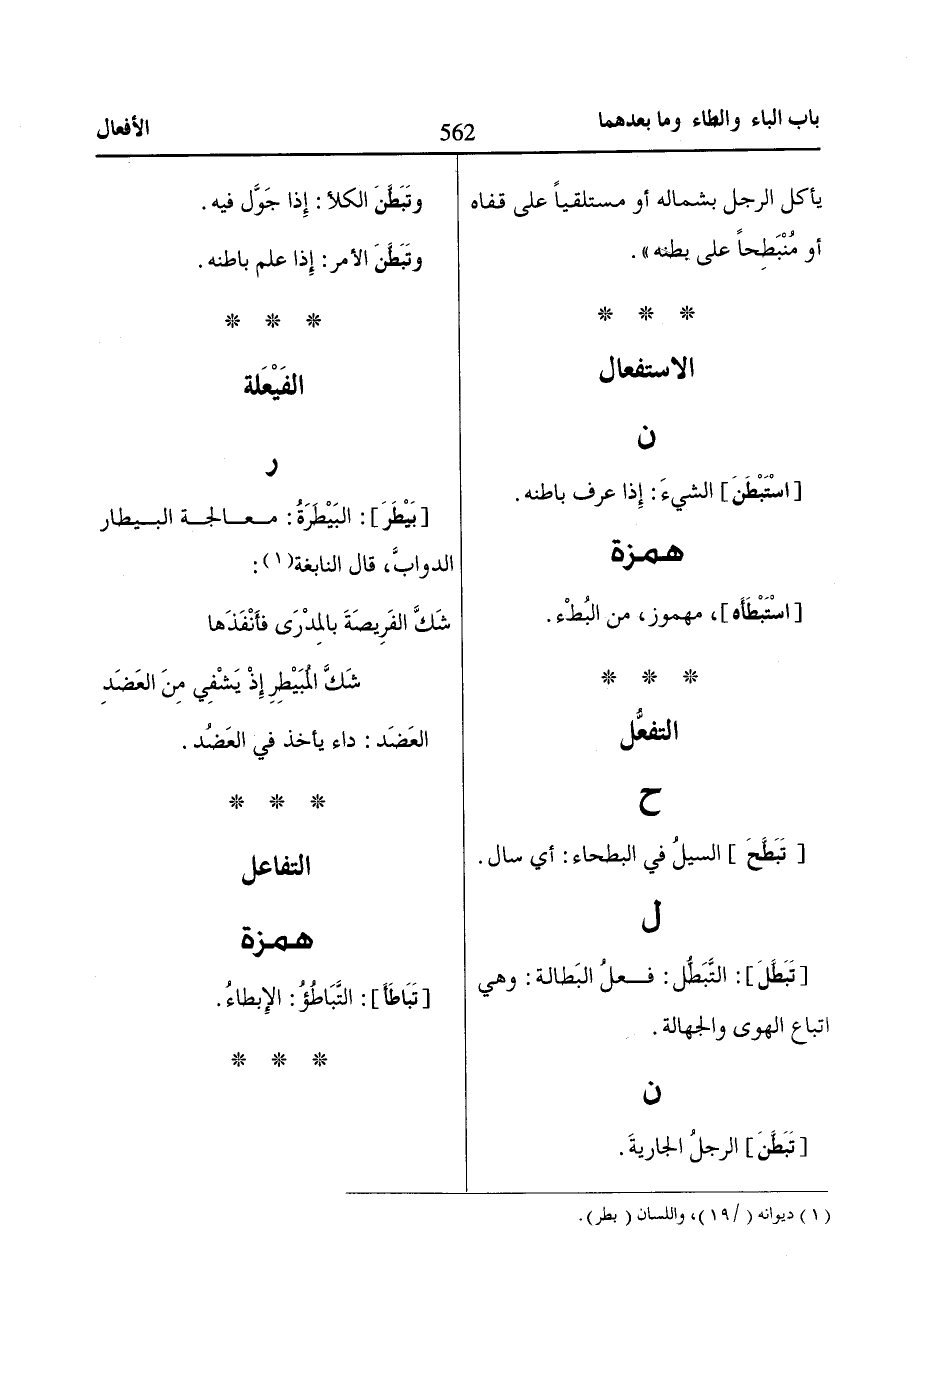 باب الباء والطاء وما بعدهما
562
الأفعال
يأكل الرجل بشماله أو مستلقياً على قفاه
أو مُنْبَطِحاً على بطنه».
* * *
الاستفعال
ن
[اسْتَبْطَنَ] الشيءَ: إذا عرف باطنه.
همزة
[اسْتَبْطَأَه]، مهموز، من البُطْء.
* * *
التفعُّل
ح
[تَبَطَّحَ] السيلُ في البطحاء: أي سال.
ل
[تَبَطَّلَ]: التَّبَطُّل: فعلُ البَطالة: وهي
اتباع الهوى والجهالة.
ن
[تَبَطَّنَ] الرجلُ الجاريةَ.
وتَبَطَّنَ الكلأ: إذا جَوَّل فيه.
وتَبَطَّنَ الأمر: إذا علم باطنه.
* * *
الفَيْعَلة
ر
[بَيْطَرَ]: البَيْطَرَةُ: معالجة البيطار
الدوابَّ، قال النابغة(١):
شَكَّ الفَرِيصَةَ بالمِدْرَى فأَنْفَذَها
شَكَّ المُبَيْطِرِ إِذْ يَشْفِي مِنَ العَضَدِ
العَضَد: داء يأخذ في العَضُد.
* * *
التفاعل
همزة
[تَبَاطَأَ]: التَّبَاطُؤُ: الإبطاءُ.
* * *
(١) ديوانه (/١٩)، واللسان (بطر).